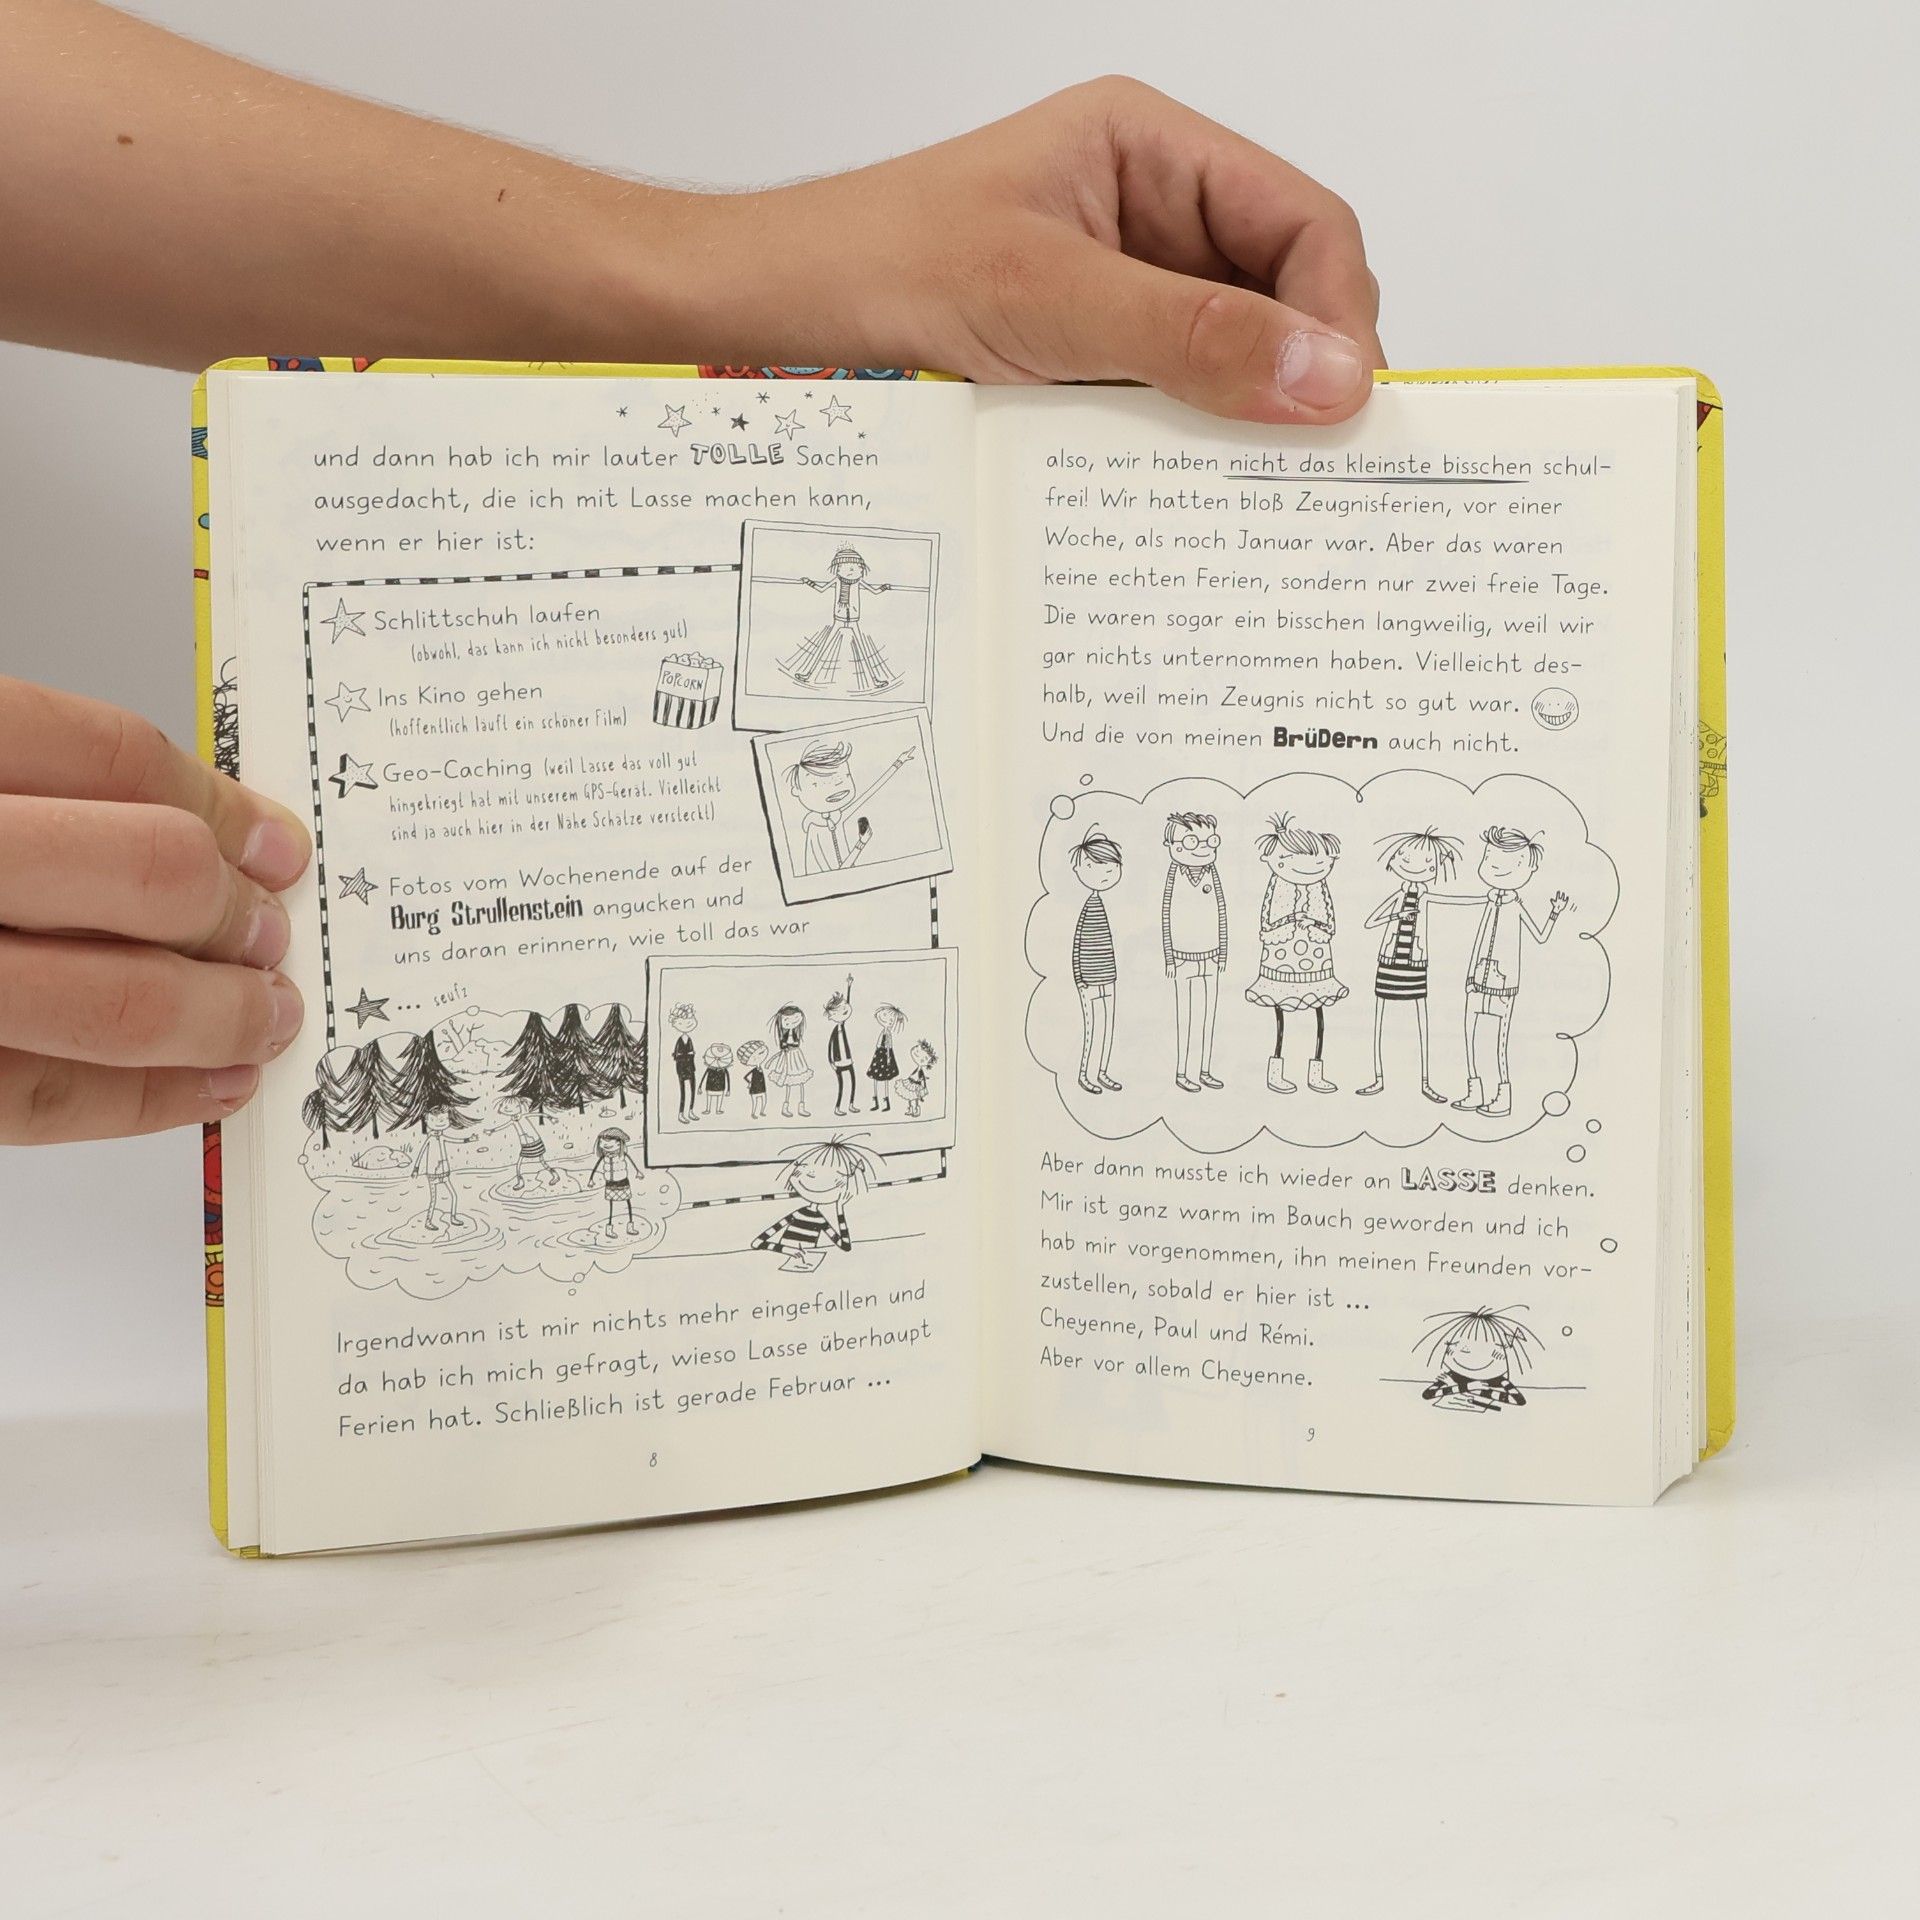 und dann hab ich mir lauter TOLLE Sachen
ausgedacht, die ich mit Lasse machen kann,
wenn er hier ist:
Schlittschuh laufen
(obwohl, das kann ich nicht besonders gut)
POPCORN
Ins Kino gehen
(hoffentlich läuft ein schöner Film)
Geo-Caching (weil Lasse das voll gut
hingekriegt hat mit unserem GPS-Gerät. Vielleicht
sind ja auch hier in der Nähe Schätze versteckt)
Fotos vom Wochenende auf der
Burg Strullenstein angucken und
uns daran erinnern, wie toll das war
... seufz
Irgendwann ist mir nichts mehr eingefallen und
da hab ich mich gefragt, wieso Lasse überhaupt
Ferien hat. Schließlich ist gerade Februar ...
8
also, wir haben nicht das kleinste bisschen schul-
frei! Wir hatten bloß Zeugnisferien, vor einer
Woche, als noch Januar war. Aber das waren
keine echten Ferien, sondern nur zwei freie Tage.
Die waren sogar ein bisschen langweilig, weil wir
gar nichts unternommen haben. Vielleicht des-
halb, weil mein Zeugnis nicht so gut war.
Und die von meinen BRÜDern auch nicht.
Aber dann musste ich wieder an LASSE denken.
Mir ist ganz warm im Bauch geworden und ich
hab mir vorgenommen, ihn meinen Freunden vor-
zustellen, sobald er hier ist ...
Cheyenne, Paul und Rémi.
Aber vor allem Cheyenne.
9